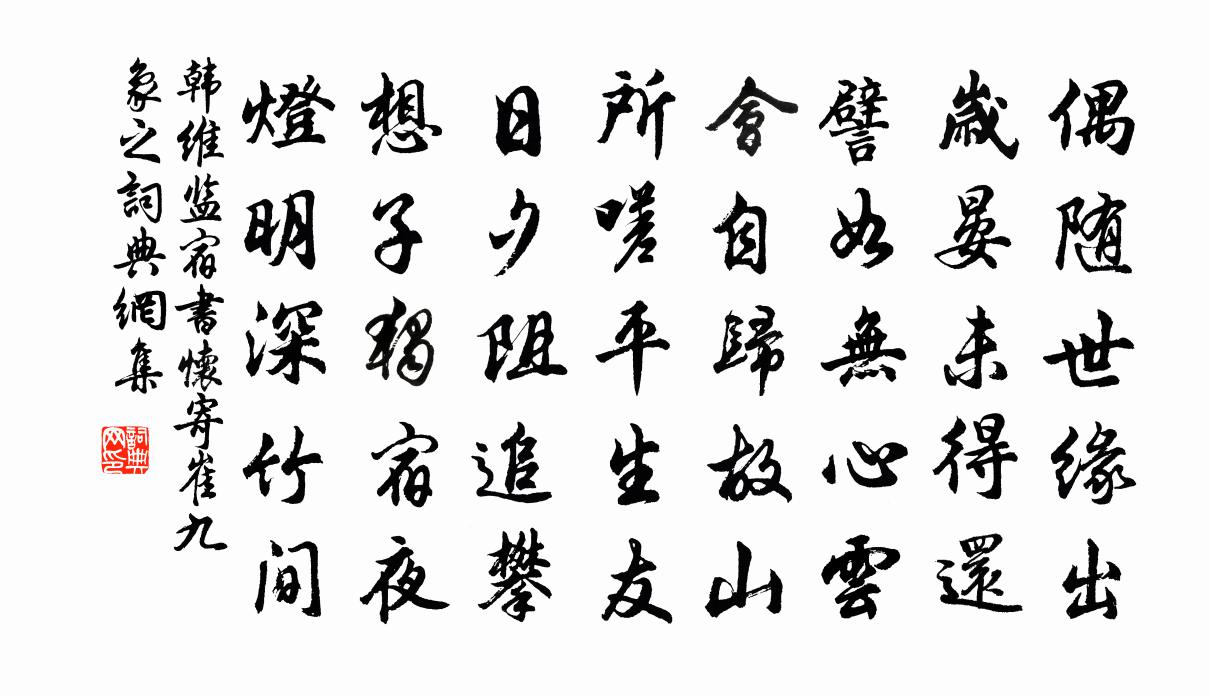 偶随世缘出
歲晏未得還
譬如無心雲
會自歸故山
所嗟平生友
日夕阻追攀
想子獨宿夜
燈明深竹间
韩維监宿書懷寄崔九
象之詞典網集
詞典
网印